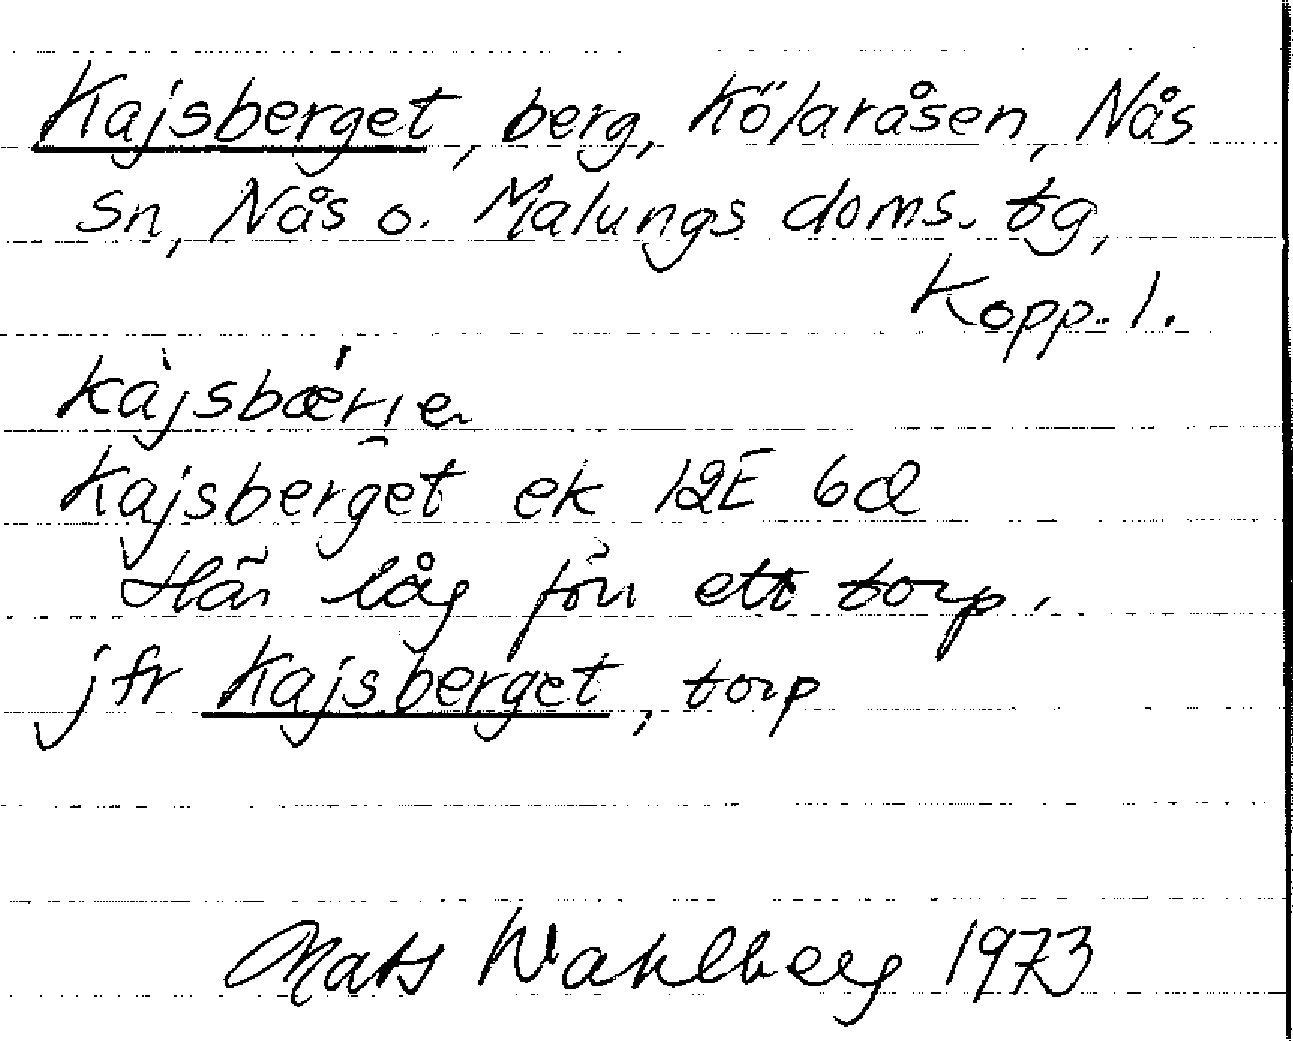 Kajsberget, berg, Kölaråsen, Nås
sn, Nås o. Malungs doms. tg,
Kopp. l.
kàjsbæ̀ri̯e
Kajsberget ek 12E 6d
Här låg förr ett torp.
jfr Kajsberget, torp
Mats Wahlberg 1973